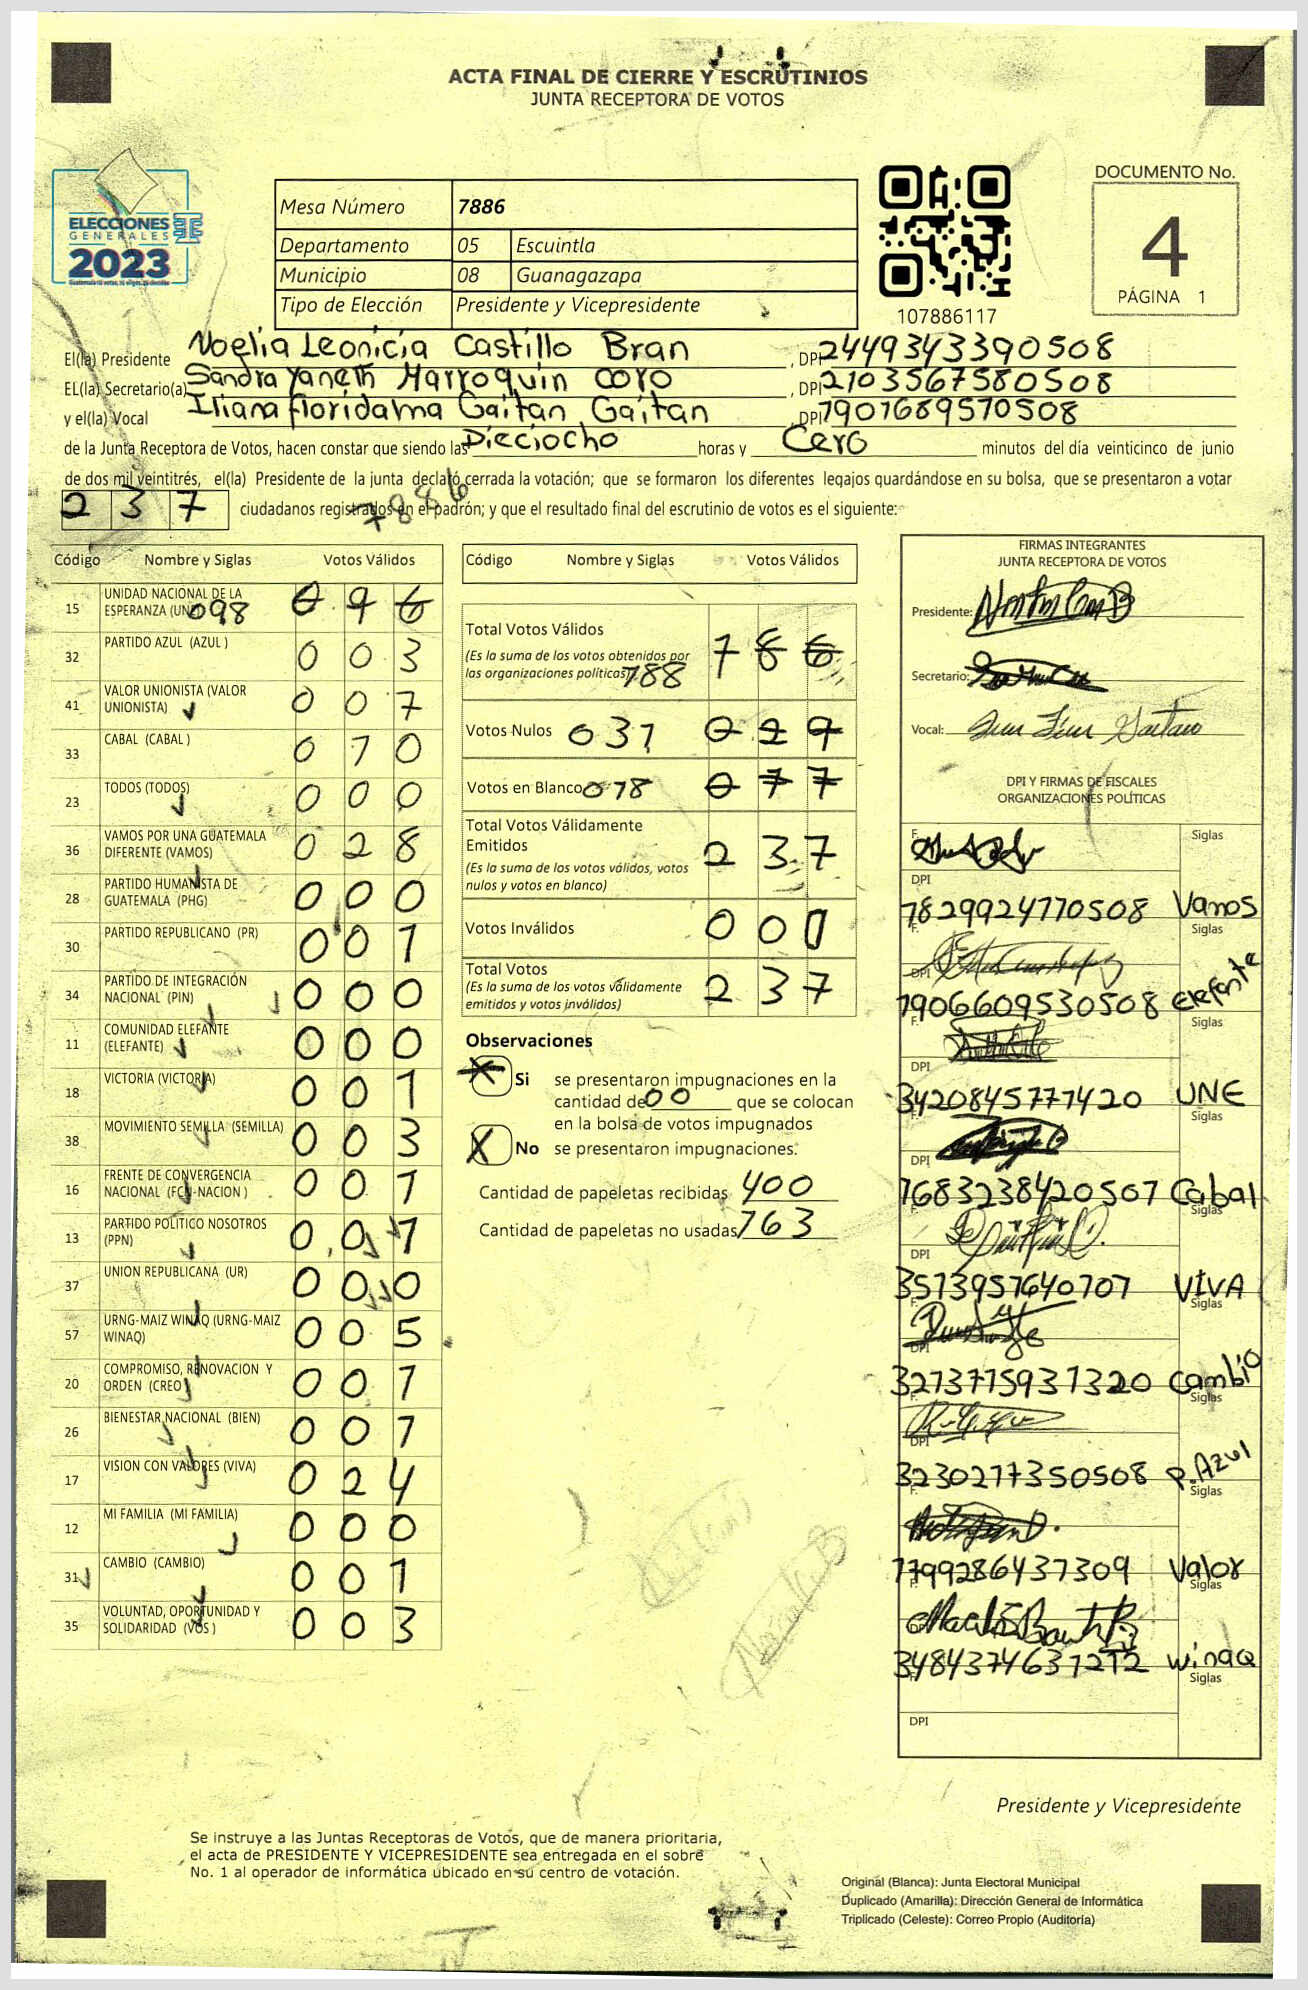 ACTA FINAL DE CIERRE Y ESCRUTINIOS
JUNTA RECEPTORA DE VOTOS
ELECCIONES
GENERALES
2023
Mesa Número 7886
Departamento 05 Escuintla
Municipio 08 Guanagazapa
Tipo de Elección Presidente y Vicepresidente
107886117
DOCUMENTO No.
4
PÁGINA 1
El(la) Presidente Noelia Leonicia Castillo Bran , DPI 2449343390508
EL(la) Secretario(a) Sandra Yaneth Marroquin coro , DPI 2103567580508
y el(la) Vocal Iliana floridalma Gaitan Gaitan , DPI 1901689510508
de la Junta Receptora de Votos, hacen constar que siendo las Dieciocho horas y Cero minutos del día veinticinco de junio
de dos mil veintitrés, el(la) Presidente de la junta declaró cerrada la votación; que se formaron los diferentes legajos quardándose en su bolsa, que se presentaron a votar
237 ciudadanos registrados en el padrón; y que el resultado final del escrutinio de votos es el siguiente:
7886
Código Nombre y Siglas Votos Válidos
15 UNIDAD NACIONAL DE LA ESPERANZA (UNE) 098 096
32 PARTIDO AZUL (AZUL ) 003
41 VALOR UNIONISTA (VALOR UNIONISTA) 007
33 CABAL (CABAL ) 010
23 TODOS (TODOS) 000
36 VAMOS POR UNA GUATEMALA DIFERENTE (VAMOS) 028
28 PARTIDO HUMANISTA DE GUATEMALA (PHG) 000
30 PARTIDO REPUBLICANO (PR) 001
34 PARTIDO DE INTEGRACIÓN NACIONAL (PIN) 000
11 COMUNIDAD ELEFANTE (ELEFANTE) 000
18 VICTORIA (VICTORIA) 001
38 MOVIMIENTO SEMILLA (SEMILLA) 003
16 FRENTE DE CONVERGENCIA NACIONAL (FCN-NACION ) 001
13 PARTIDO POLITICO NOSOTROS (PPN) 001
37 UNION REPUBLICANA (UR) 000
57 URNG-MAIZ WINAQ (URNG-MAIZ WINAQ) 005
20 COMPROMISO, RENOVACION Y ORDEN (CREO) 001
26 BIENESTAR NACIONAL (BIEN) 001
17 VISION CON VALORES (VIVA) 024
12 MI FAMILIA (MI FAMILIA) 000
31 CAMBIO (CAMBIO) 001
35 VOLUNTAD, OPORTUNIDAD Y SOLIDARIDAD (VOS ) 003
Código Nombre y Siglas Votos Válidos
Total Votos Válidos 186
(Es la suma de los votos obtenidos por
las organizaciones políticas) 188
Votos Nulos 031 029
Votos en Blanco 018 011
Total Votos Válidamente
Emitidos 237
(Es la suma de los votos válidos, votos
nulos y votos en blanco)
Votos Inválidos 000
Total Votos 237
(Es la suma de los votos válidamente
emitidos y votos inválidos)
Observaciones
Si se presentaron impugnaciones en la
cantidad de 00 que se colocan
en la bolsa de votos impugnados
X No se presentaron impugnaciones.
Cantidad de papeletas recibidas 400
Cantidad de papeletas no usadas 163
FIRMAS INTEGRANTES
JUNTA RECEPTORA DE VOTOS
Presidente:
Secretario:
Vocal:
DPI Y FIRMAS DE FISCALES
ORGANIZACIONES POLÍTICAS
F. Siglas
DPI
1829924770508 Vamos
F. Siglas
DPI
1906609530508 Elefante
F. Siglas
DPI
3420845771420 UNE
F. Siglas
DPI
1683238420507 Cabal
F. Siglas
DPI
3513951640101 VIVA
F. Siglas
DPI
3213715931320 Cambio
F. Siglas
DPI
3230217350508 P. Azul
F. Siglas
1799286437309 Valor
F. Siglas
DPI
3484374631212 winaq
Siglas
DPI
Presidente y Vicepresidente
Se instruye a las Juntas Receptoras de Votos, que de manera prioritaria,
el acta de PRESIDENTE Y VICEPRESIDENTE sea entregada en el sobre
No. 1 al operador de informática ubicado en su centro de votación.
Original (Blanca): Junta Electoral Municipal
Duplicado (Amarilla): Dirección General de Informática
Triplicado (Celeste): Correo Propio (Auditoría)